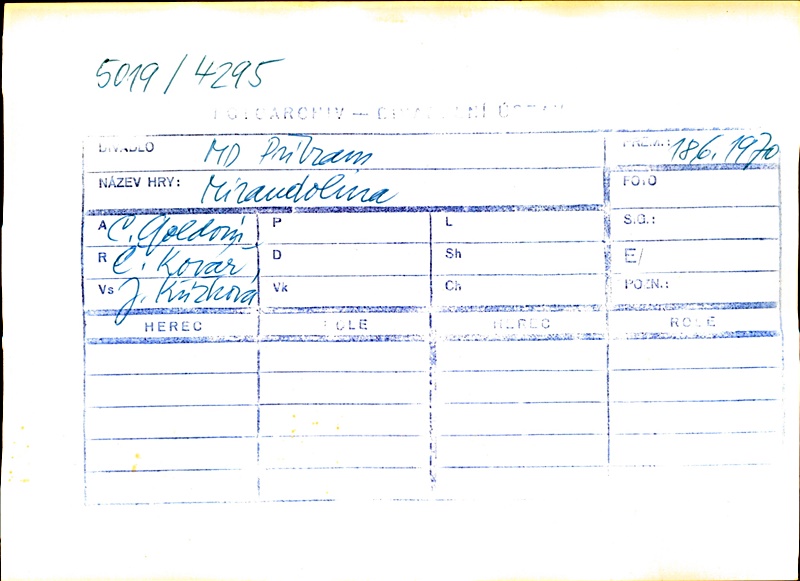 5019 / 4295
FOTOARCHIV — DIVADELNÍ ÚSTAV
DIVADLO MD Příbram PREM.: 18/6. 1970
NÁZEV HRY: Mirandolina FOTO
A C. Goldoni P L S.G.:
R C. Kovář D Sh E/
Vs J. Kůzková Vk Ch POZN.:
HEREC ROLE HEREC ROLE